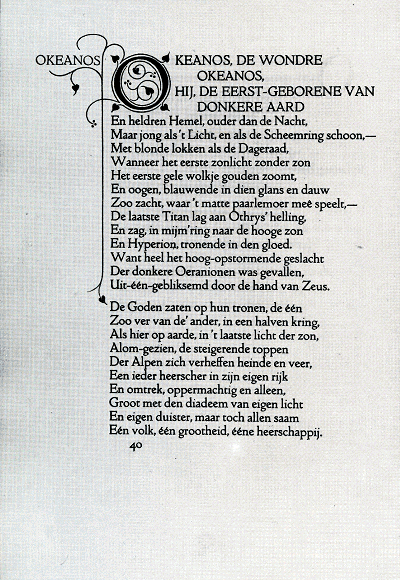 OKEANOS
OKEANOS, DE WONDRE
OKEANOS,
HIJ, DE EERST-GEBORENE VAN
DONKERE AARD
En heldren Hemel, ouder dan de Nacht,
Maar jong als 't Licht, en als de Scheemring schoon,—
Met blonde lokken als de Dageraad,
Wanneer het eerste zonlicht zonder zon
Het eerste gele wolkje gouden zoomt,
En oogen, blauwende in dien glans en dauw
Zoo zacht, waar 't matte paarlemoer meê speelt,—
De laatste Titan lag aan Othrys' helling,
En zag, in mijm'ring naar de hooge zon
En Hyperion, tronende in den gloed.
Want heel het hoog-opstormende geslacht
Der donkere Oeranionen was gevallen,
Uit-één-gebliksemd door de hand van Zeus.
De Goden zaten op hun tronen, de één
Zoo ver van de' ander, in een halven kring,
Als hier op aarde, in 't laatste licht der zon,
Alom-gezien, de steigerende toppen
Der Alpen zich verheffen heinde en veer,
Een ieder heerscher in zijn eigen rijk
En omtrek, oppermachtig en alleen,
Groot met den diadeem van eigen licht
En eigen duister, maar toch allen saam
Eén volk, één grootheid, ééne heerschappij.
40